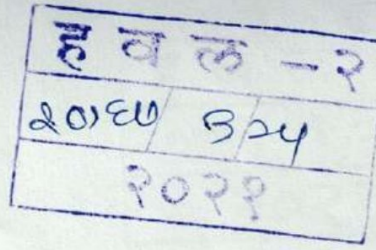 हवल - २
२०१६७ / ३२५
२०२१